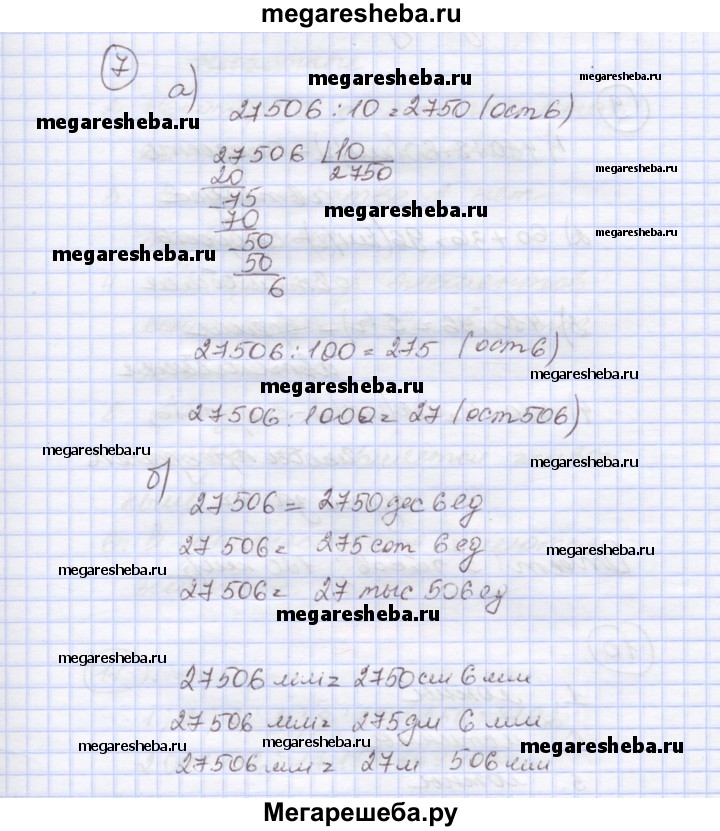 megaresheba.ru
7
megaresheba.ru
а)
27506 : 10 = 2750 (ост 6)
megaresheba.ru
27506 10
20 2750
75
megaresheba.ru
70
50
megaresheba.ru
50
6
27506 : 100 = 275 (ост 6)
megaresheba.ru
megaresheba.ru
27506 : 1000 = 27 (ост 506)
megaresheba.ru
megaresheba.ru
б)
27506 = 2750 дес 6 ед
27506 = 275 сот 6 ед
megaresheba.ru
megaresheba.ru
27506 = 27 тыс 506 ед
megaresheba.ru
megaresheba.ru
27506 мм = 2750 см 6 мм
27506 мм = 275 дм 6 мм
megaresheba.ru
megaresheba.ru
megaresheba.ru
27506 мм = 27 м 506 мм
Мегарешеба.ру